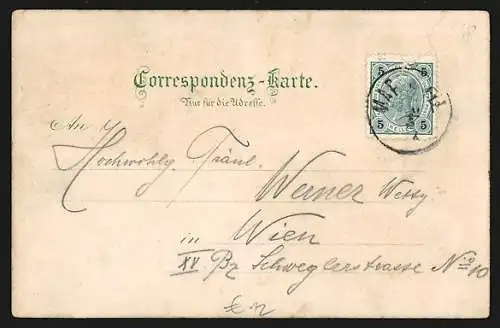 5 5
Correspondenz-Karte.
Nur für die Adresse.
5 5
An
Hochwohlg. Fräul.
Werner Wetty
in Wien
XV. Bz Schweglerstrasse No 10